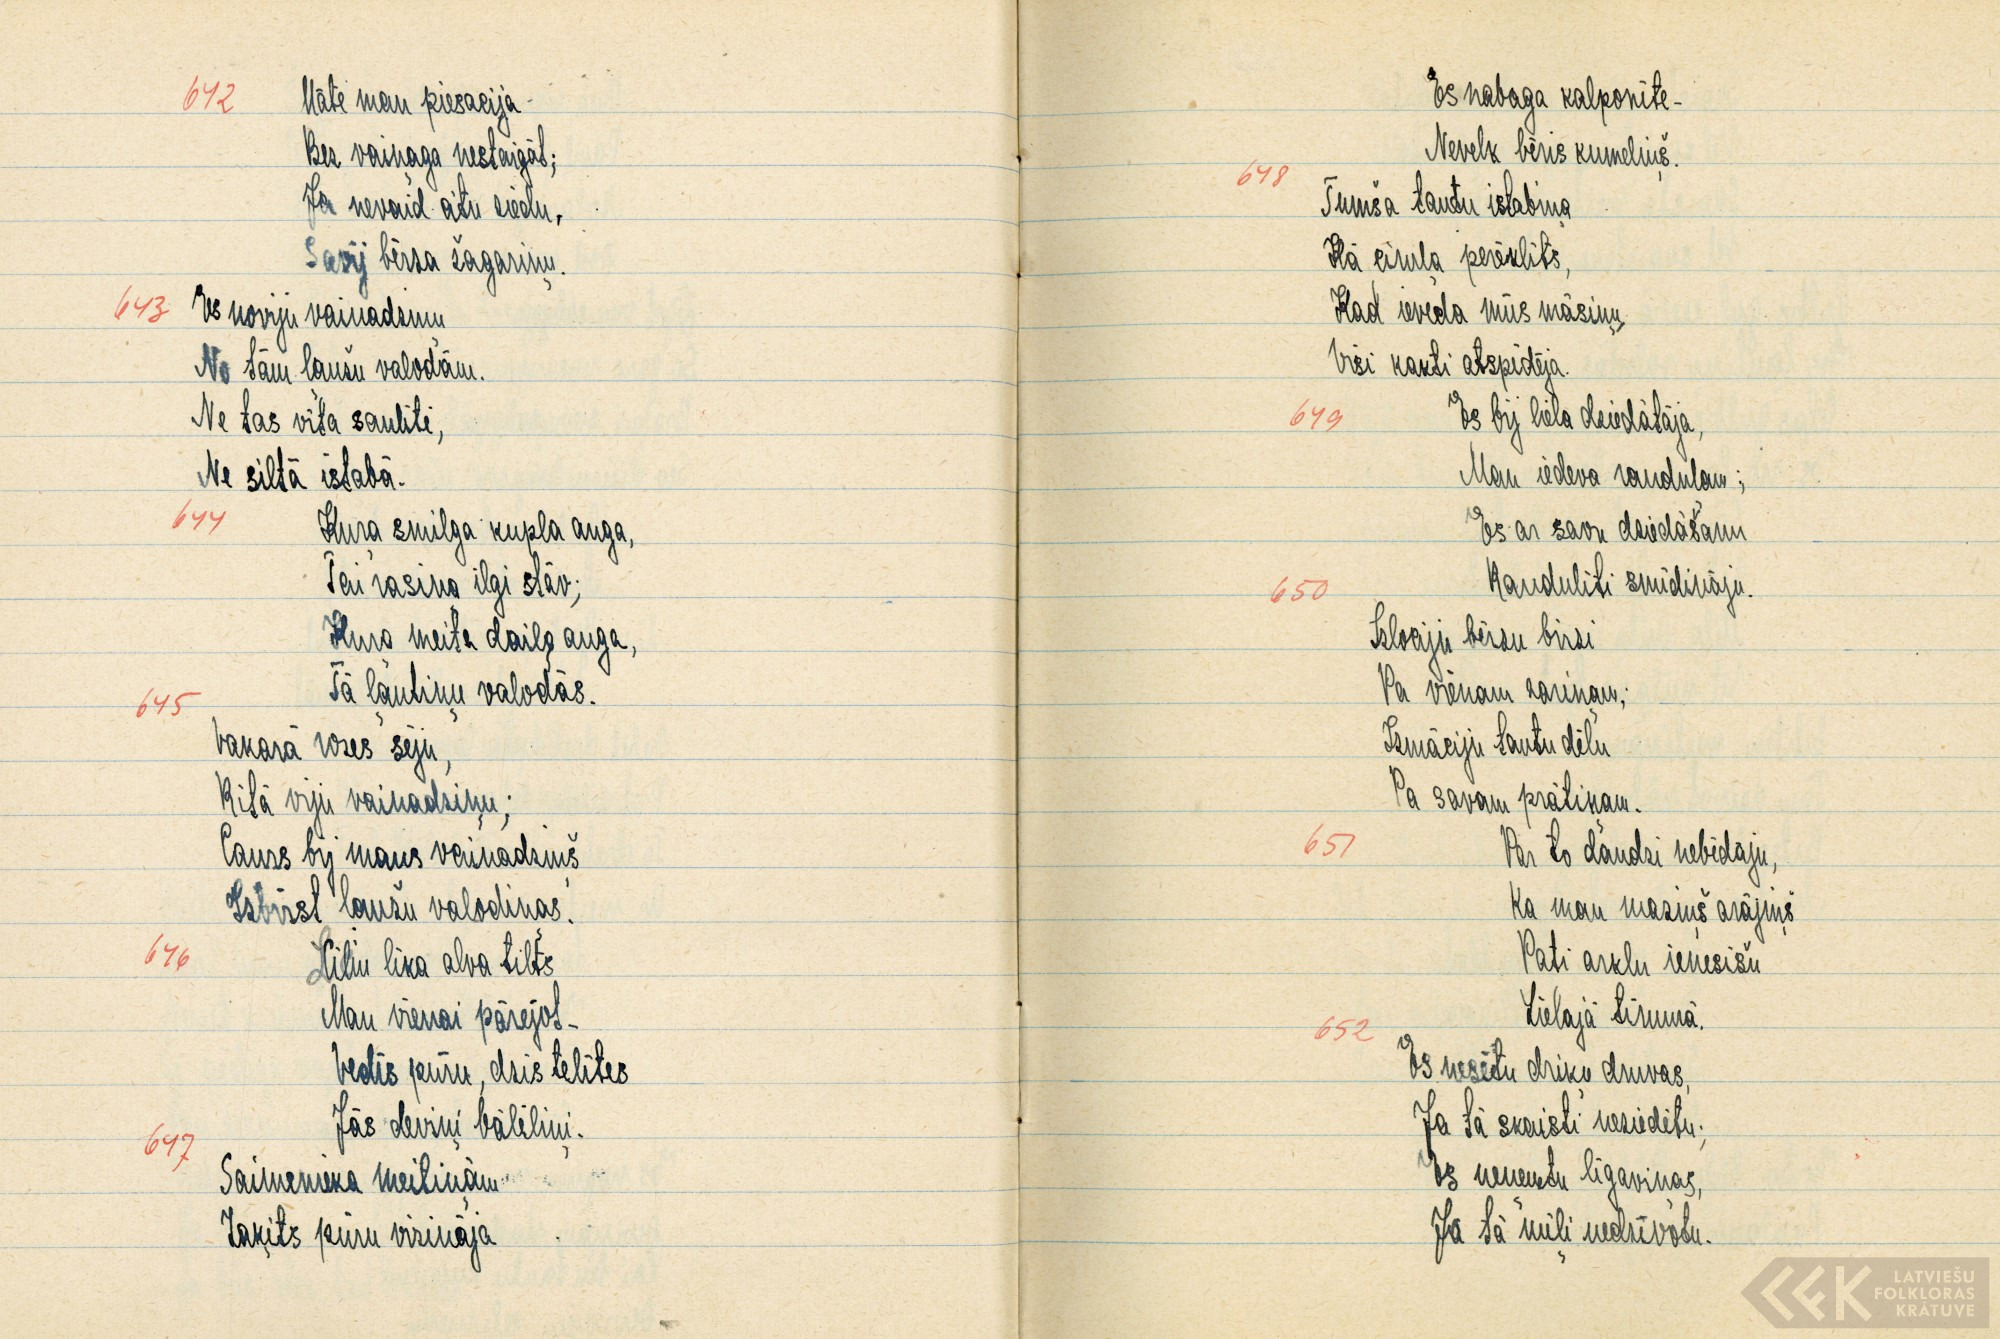 642
Māte man piesacija-
Bez vaiņaga nestaigāt;
Ja nevaid citu ziedu,
Savij bērza žagariņu.
643
Es noviju vainadziņu
No tām ļaužu valodām.
Ne tas vīta saulītē,
Ne siltā istabā.
644
Kura smilga kupla auga,
Tai rasiņa ilgi stāv;
Kura meita daiļa auga,
Tā ļautiņu valodās.
645
Vakarā rozes sēju,
Rītā viju vainadziņu;
Caurs bij mans vainadziņš
Izbirst ļaužu valodiņas.
646
līka alva tilts
Man vienai pārejot-
Vedīs pūru, dzis telītes
Jās deviņi bālēliņi.
647
Saimenieka meitiņām
Zaķits pūru vizināja
Es nabaga kalponīte-
Nevelk bēris kumeliņš.
648
Tumša tautu istabiņa
Kā cīruļa perēklīts,
Kad ieveda mūs māsiņu
Visi kakti atspīdēja.
649
Es bij liela dziedātāja,
Man iedeva raudulam;
Es ar savu dziedāšanu
Rauduliti smīdināju.
650
Izlociju bērzu birzi
Pa vienam zariņam;
Izmāciju tautu dēlu
Pa savam prātiņam.
651
Par to daudzi nebīdaju,
Ka man maziņš arājiņš
Pati arklu ienesišu
Lielajā tīrumā.
652
Es nesētu driķu druvas,
Ja tā skaisti neziedētu;
Es neņemtu līgaviņas,
Ja tā mīļi nedzīvotu.
LATVIEŠU
FOLKLORAS
KRĀTUVE